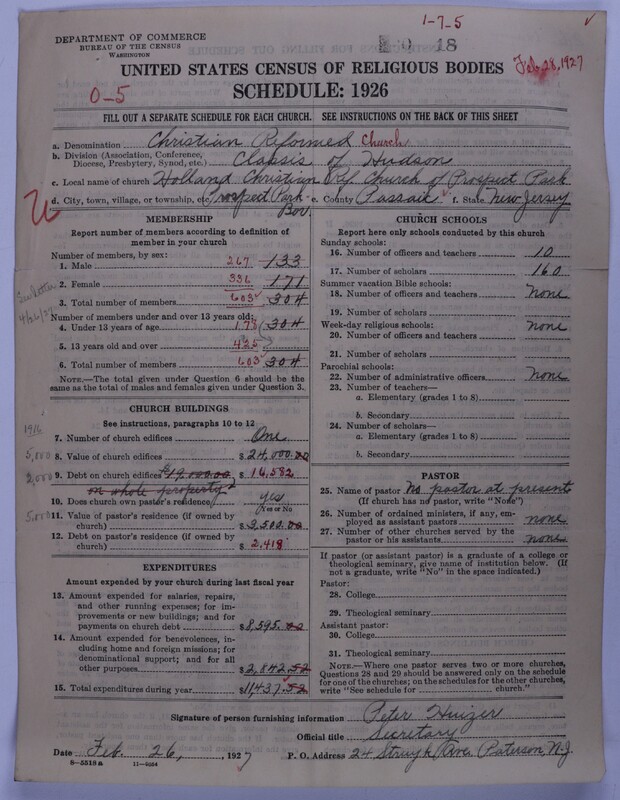 1-7-5
DEPARTMENT OF COMMERCE
BUREAU OF THE CENSUS
WASHINGTON
18
UNITED STATES CENSUS OF RELIGIOUS BODIES
Feb 28, 1927
0-5
SCHEDULE: 1926
FILL OUT A SEPARATE SCHEDULE FOR EACH CHURCH. SEE INSTRUCTIONS ON THE BACK OF THIS SHEET
a. Denomination Christian Reformed Church
b. Division (Association, Conference, Diocese, Presbytery, Synod, etc.) Classis of Hudson
c. Local name of church Holland Christian Ref. Church of Prospect Park
d. City, town, village, or township, etc Prospect Park Bor. e. County Passaic f. State New Jersey
MEMBERSHIP
Report number of members according to definition of
member in your church
Number of members, by sex:
1. Male 267 133
2. Female 336 171
3. Total number of members 603 304
Number of members under and over 13 years old:
4. Under 13 years of age 178 304
5. 13 years old and over 425
6. Total number of members 603 304
NOTE.—The total given under Question 6 should be
same as the total of males and females given under Question 3.
CHURCH BUILDINGS
See instructions, paragraphs 10 to 12
1916
7. Number of church edifices One
5,000 8. Value of church edifices $24,000.00
2,000 9. Debt on church edifices $19,000.00 $16,582
on whole property
10. Does church own pastor's residence? yes
(Yes or No)
5,000 11. Value of pastor's residence (if owned by
church) $3,500.00
12. Debt on pastor's residence (if owned by
church) $2,418
EXPENDITURES
Amount expended by your church during last fiscal year
13. Amount expended for salaries, repairs,
and other running expenses; for im-
provements or new buildings; and for
payments on church debt $8,595.02
14. Amount expended for benevolences, in-
cluding home and foreign missions; for
denominational support; and for all
other purposes $2,842.52
15. Total expenditures during year $11,437.52
CHURCH SCHOOLS
Report here only schools conducted by this church
Sunday schools:
16. Number of officers and teachers 10
17. Number of scholars 160
Summer vacation Bible schools:
18. Number of officers and teachers none
19. Number of scholars
Week-day religious schools: none
20. Number of officers and teachers
21. Number of scholars
Parochial schools:
22. Number of administrative officers none
23. Number of teachers—
a. Elementary (grades 1 to 8)
b. Secondary
24. Number of scholars—
a. Elementary (grades 1 to 8)
b. Secondary
PASTOR
25. Name of pastor No pastor at present
(If church has no pastor, write "None")
26. Number of ordained ministers, if any, em-
ployed as assistant pastors none
27. Number of other churches served by the
pastor or his assistants none
If pastor (or assistant pastor) is a graduate of a college or
theological seminary, give name of institution below. (If
not a graduate, write "No" in the space indicated.)
Pastor:
28. College
29. Theological seminary
Assistant pastor:
30. College
31. Theological seminary
NOTE.—Where one pastor serves two or more churches,
Questions 28 and 29 should be answered only on the schedule
for one of the churches; on the schedules for the other churches,
write "See schedule for church."
Signature of person furnishing information Peter Huizer
Official title Secretary
Date Feb. 26, 1927 P. O. Address 24 Struyk Ave. Paterson N.J.
8-5518a 11-5664